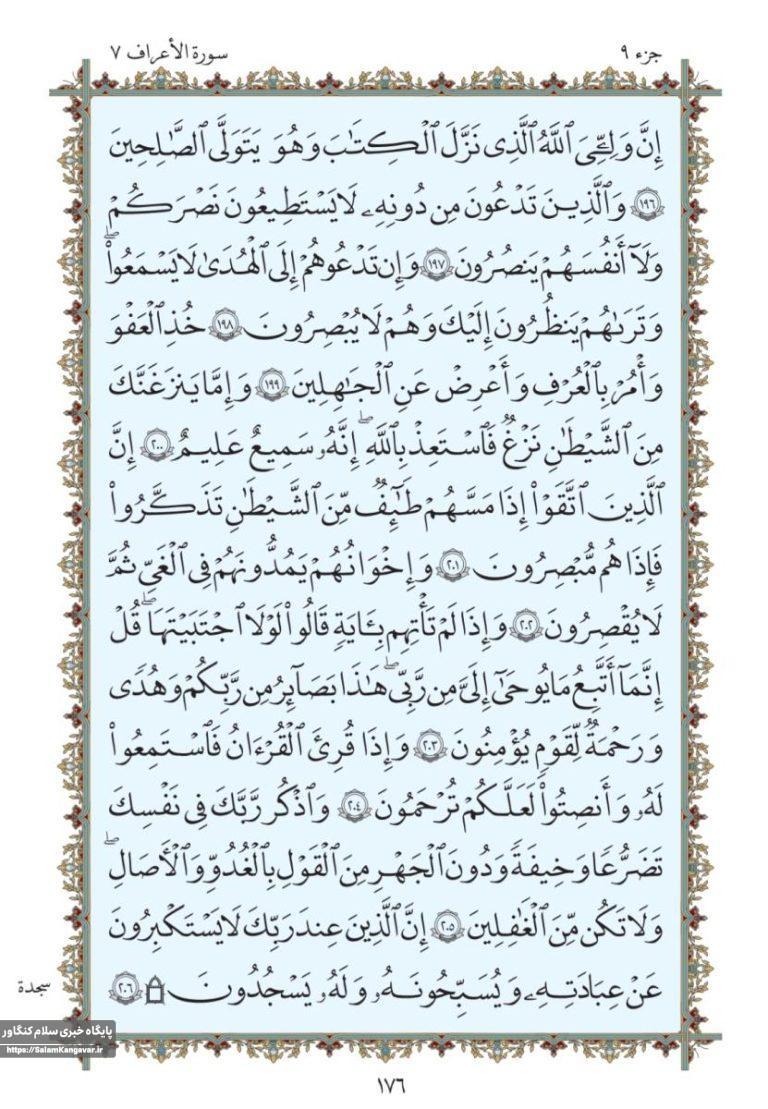 جزء ٩
سورة الأعراف ٧
إِنَّ وَلِـِّۧيَ ٱللَّهُ ٱلَّذِى نَزَّلَ ٱلْكِتَـٰبَ وَهُوَ يَتَوَلَّى ٱلصَّـٰلِحِينَ
١٩٦ وَٱلَّذِينَ تَدْعُونَ مِن دُونِهِۦ لَا يَسْتَطِيعُونَ نَصْرَكُمْ
وَلَآ أَنفُسَهُمْ يَنصُرُونَ ١٩٧ وَإِن تَدْعُوهُمْ إِلَى ٱلْهُدَىٰ لَا يَسْمَعُوا۟ ۖ
وَتَرَىٰهُمْ يَنظُرُونَ إِلَيْكَ وَهُمْ لَا يُبْصِرُونَ ١٩٨ خُذِ ٱلْعَفْوَ
وَأْمُرْ بِٱلْعُرْفِ وَأَعْرِضْ عَنِ ٱلْجَـٰهِلِينَ ١٩٩ وَإِمَّا يَنزَغَنَّكَ
مِنَ ٱلشَّيْطَـٰنِ نَزْغٌ فَٱسْتَعِذْ بِٱللَّهِ ۖ إِنَّهُۥ سَمِيعٌ عَلِيمٌ ٢٠٠ إِنَّ
ٱلَّذِينَ ٱتَّقَوْا۟ إِذَا مَسَّهُمْ طَـٰٓئِفٌ مِّنَ ٱلشَّيْطَـٰنِ تَذَكَّرُوا۟
فَإِذَا هُم مُّبْصِرُونَ ٢٠١ وَإِخْوَانُهُمْ يَمُدُّونَهُمْ فِى ٱلْغَىِّ ثُمَّ
لَا يُقْصِرُونَ ٢٠٢ وَإِذَا لَمْ تَأْتِهِم بِـَٔايَةٍ قَالُوا۟ لَوْلَا ٱجْتَبَيْتَهَا ۚ قُلْ
إِنَّمَآ أَتَّبِعُ مَا يُوحَىٰٓ إِلَىَّ مِن رَّبِّى ۚ هَـٰذَا بَصَآئِرُ مِن رَّبِّكُمْ وَهُدًى
وَرَحْمَةٌ لِّقَوْمٍ يُؤْمِنُونَ ٢٠٣ وَإِذَا قُرِئَ ٱلْقُرْءَانُ فَٱسْتَمِعُوا۟
لَهُۥ وَأَنصِتُوا۟ لَعَلَّكُمْ تُرْحَمُونَ ٢٠٤ وَٱذْكُر رَّبَّكَ فِى نَفْسِكَ
تَضَرُّعًا وَخِيفَةً وَدُونَ ٱلْجَهْرِ مِنَ ٱلْقَوْلِ بِٱلْغُدُوِّ وَٱلْـَٔاصَالِ ۖ
وَلَا تَكُن مِّنَ ٱلْغَـٰفِلِينَ ٢٠٥ إِنَّ ٱلَّذِينَ عِندَ رَبِّكَ لَا يَسْتَكْبِرُونَ
عَنْ عِبَادَتِهِۦ وَيُسَبِّحُونَهُۥ وَلَهُۥ يَسْجُدُونَ ۩ ٢٠٦
سجدة
پایگاه خبری سلام کنگاور
https://SalamKangavar.ir
١٧٦